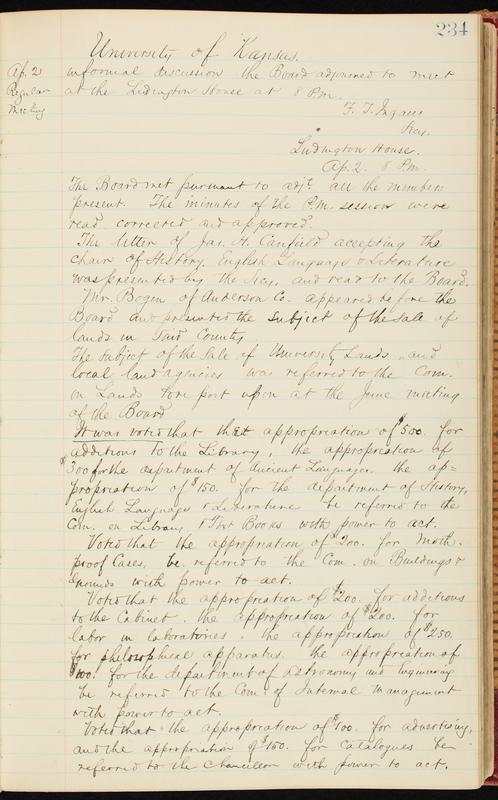 234
University of Kansas.
Ap. 2
Regular
Meeting
informal discussion the Board adjourned to meet
at the Ludington House at 8 P.m.
F. T. Ingalls
Secy.
Ludington House.
Ap. 2. 8 P.m.
The Board met pursuant to adjt. all the members
present. The minutes of the P.M. session were
read corrected and approved.
The letter of Jas. H. Canfield accepting the
chair of History, English Language & Literature
was presented by the Secy. and read to the Board.
Mr. Bogen of Anderson Co. appeared before the
Board and presented the subject of the sale of
lands in Said County
The subject of the sale of University Lands and
local land agencies was referred to the Com.
on Lands to report upon at the June meeting
of the Board
It was voted that that appropriation of $500. for
additions to the Library, the appropriation of
$300 for the department of Ancient Languages. the ap=
propriation of $150. for the department of History,
English Language & Literature be referred to the
Com. on Library & Text Books with power to act.
Voted that the appropriation of $200. for Moth.
proof Cases, be referred to the Com. on Buildings &
Grounds with power to act.
Voted that the appropriation of $200. for additions
to the Cabinet, the appropriation of $200. for
labor in laboratories, the appropriation of $250.
for philosophical apparatus. the appropriation of
$100. for the department of Astronomy and Engineering
be referred to the Com. of Internal Management
with power to act.
Voted that the appropriation of $100. for advertising,
and the appropriation of $150. for Catalogues be
referred to the Chancellor with power to act.